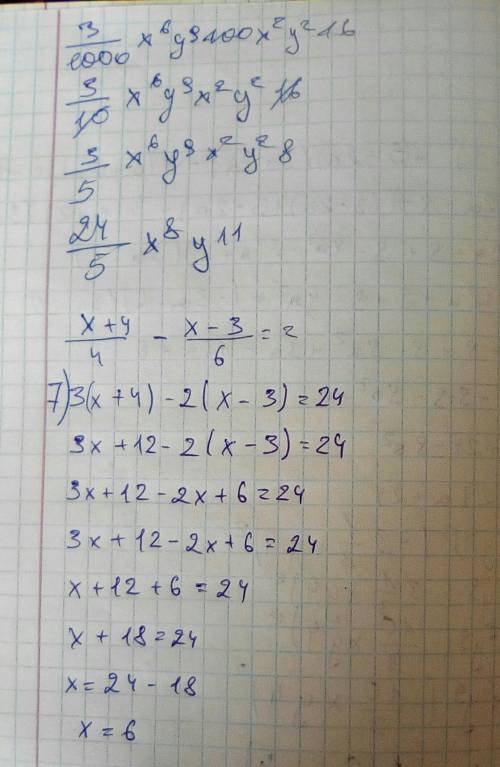 3/1000 x⁶y⁹100x²y²16
3/10 x⁶y⁹x²y² 16
3/5 x⁶y⁹x²y² 8
24/5 x⁸y¹¹
x+4/4 - x-3/6 = 2
7) 3(x+4)-2(x-3)=24
3x+12-2(x-3)=24
3x+12-2x+6=24
3x+12-2x+6=24
x+12+6=24
x+18=24
x=24-18
x=6